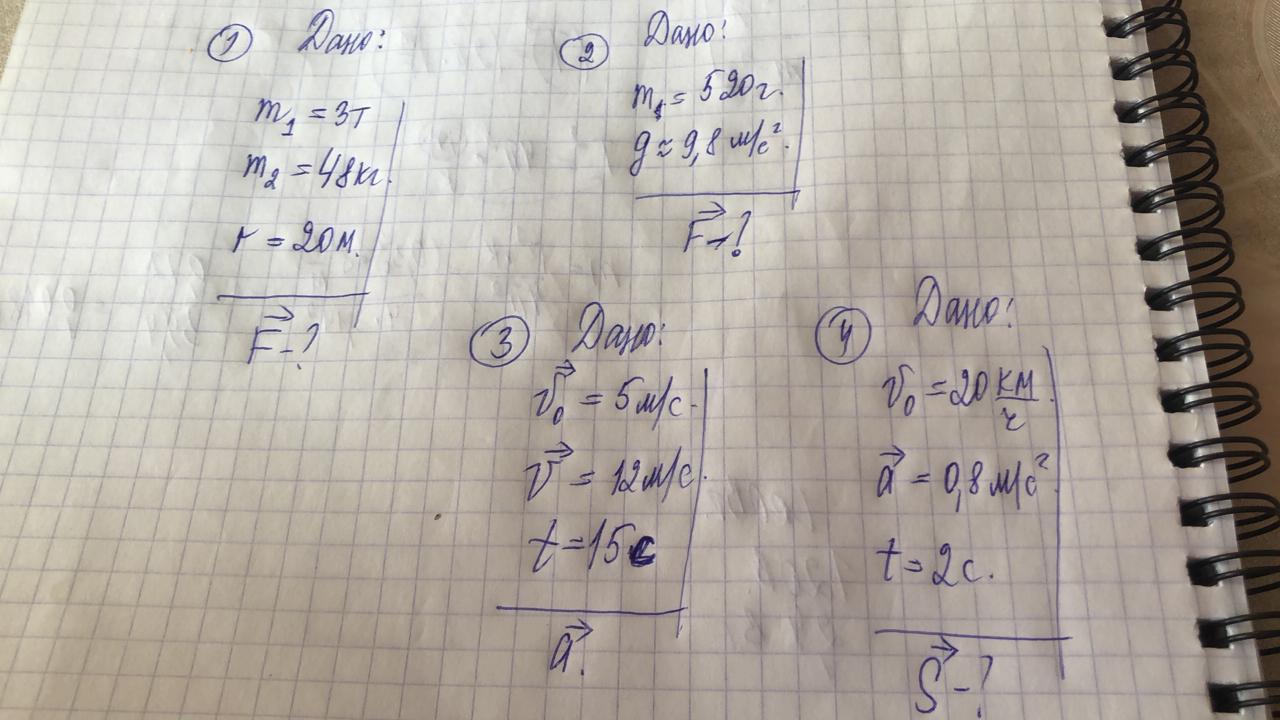 ① Дано:
m₁ = 3т
m₂ = 48кг.
r = 20м.
F⃗ - ?
② Дано:
m₁ = 520г.
g ≈ 9,8 м/с².
F⃗ - ?
③ Дано:
v⃗₀ = 5м/с.
v⃗ = 12м/с.
t = 15с
a⃗ .
④ Дано:
v₀ = 20 км/ч.
a⃗ = 0,8 м/с².
t = 2с.
S⃗ - ?